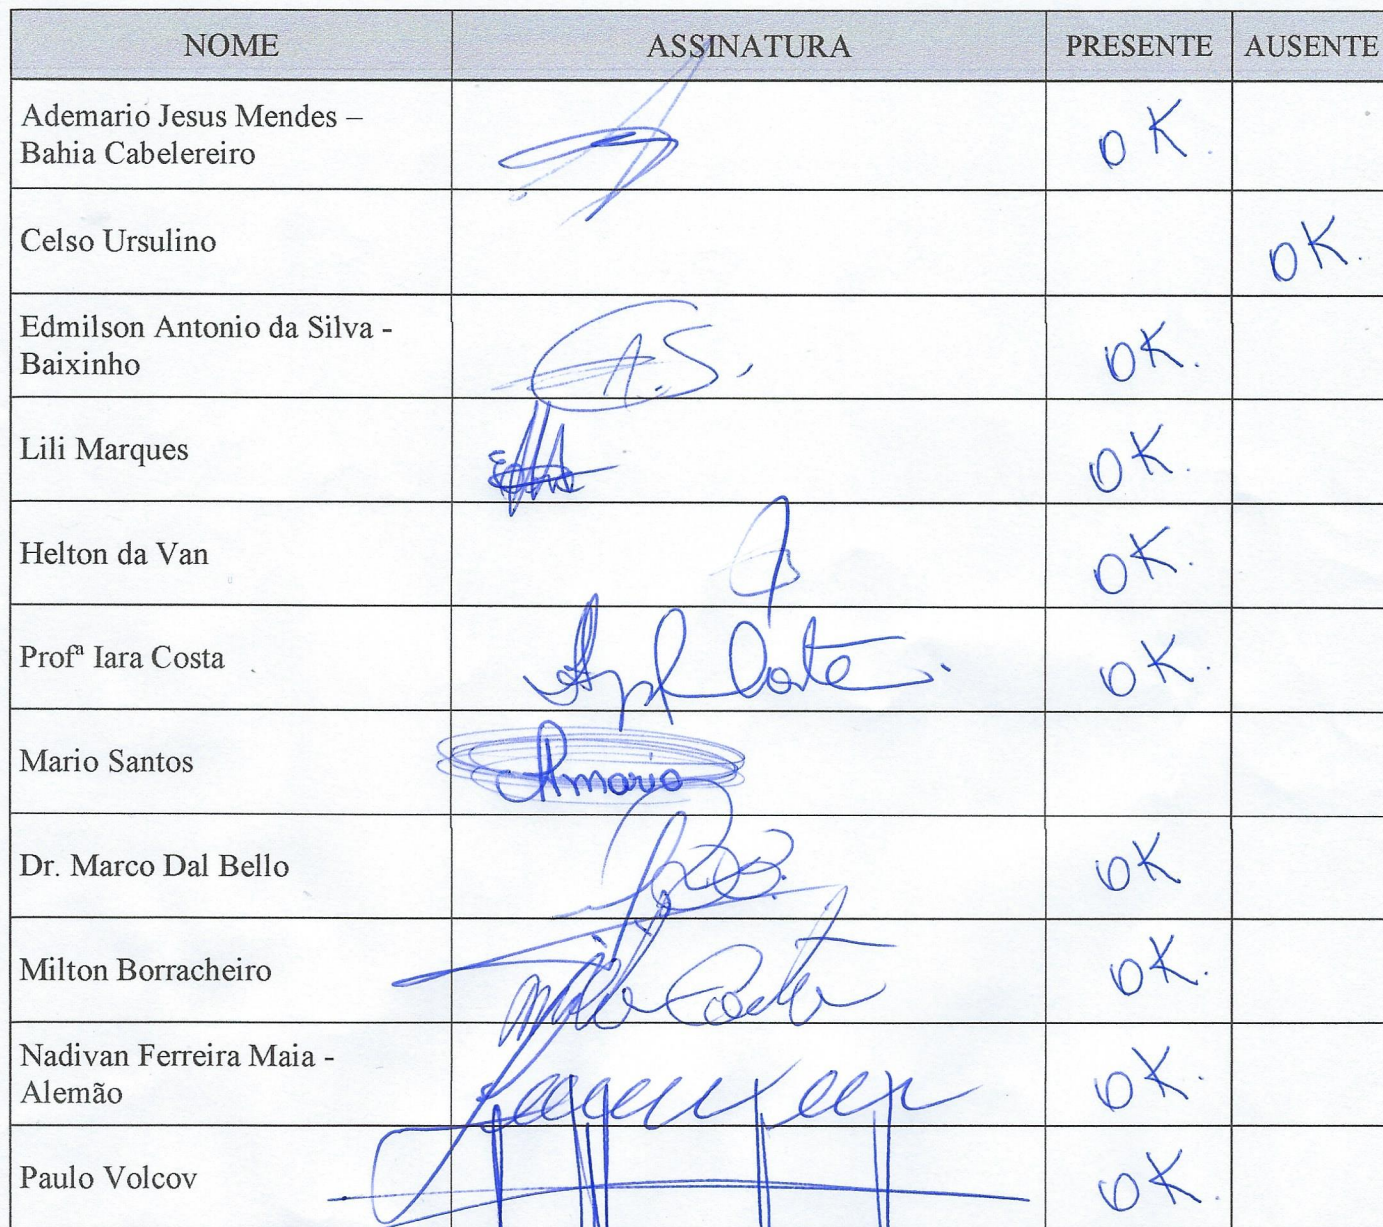 NOME ASSINATURA PRESENTE AUSENTE
Ademario Jesus Mendes –
Bahia Cabelereiro OK.
Celso Ursulino OK.
Edmilson Antonio da Silva -
Baixinho A.S. OK.
Lili Marques OK.
Helton da Van OK.
Profª Iara Costa Costa OK.
Mario Santos Amario
Dr. Marco Dal Bello OK
Milton Borracheiro Milton Costa OK.
Nadivan Ferreira Maia -
Alemão OK.
Paulo Volcov OK.